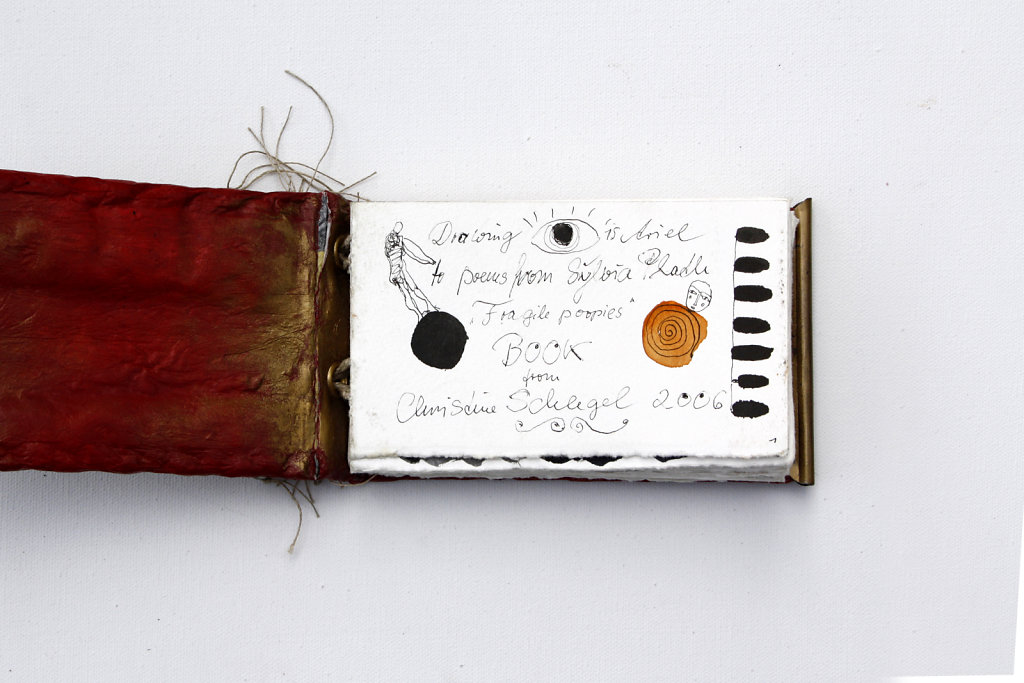 Drawing is Ariel
to poems from Sylvia Plath
„Fragile poppies“
BOOK
from
Christine Schlegel 2006
1